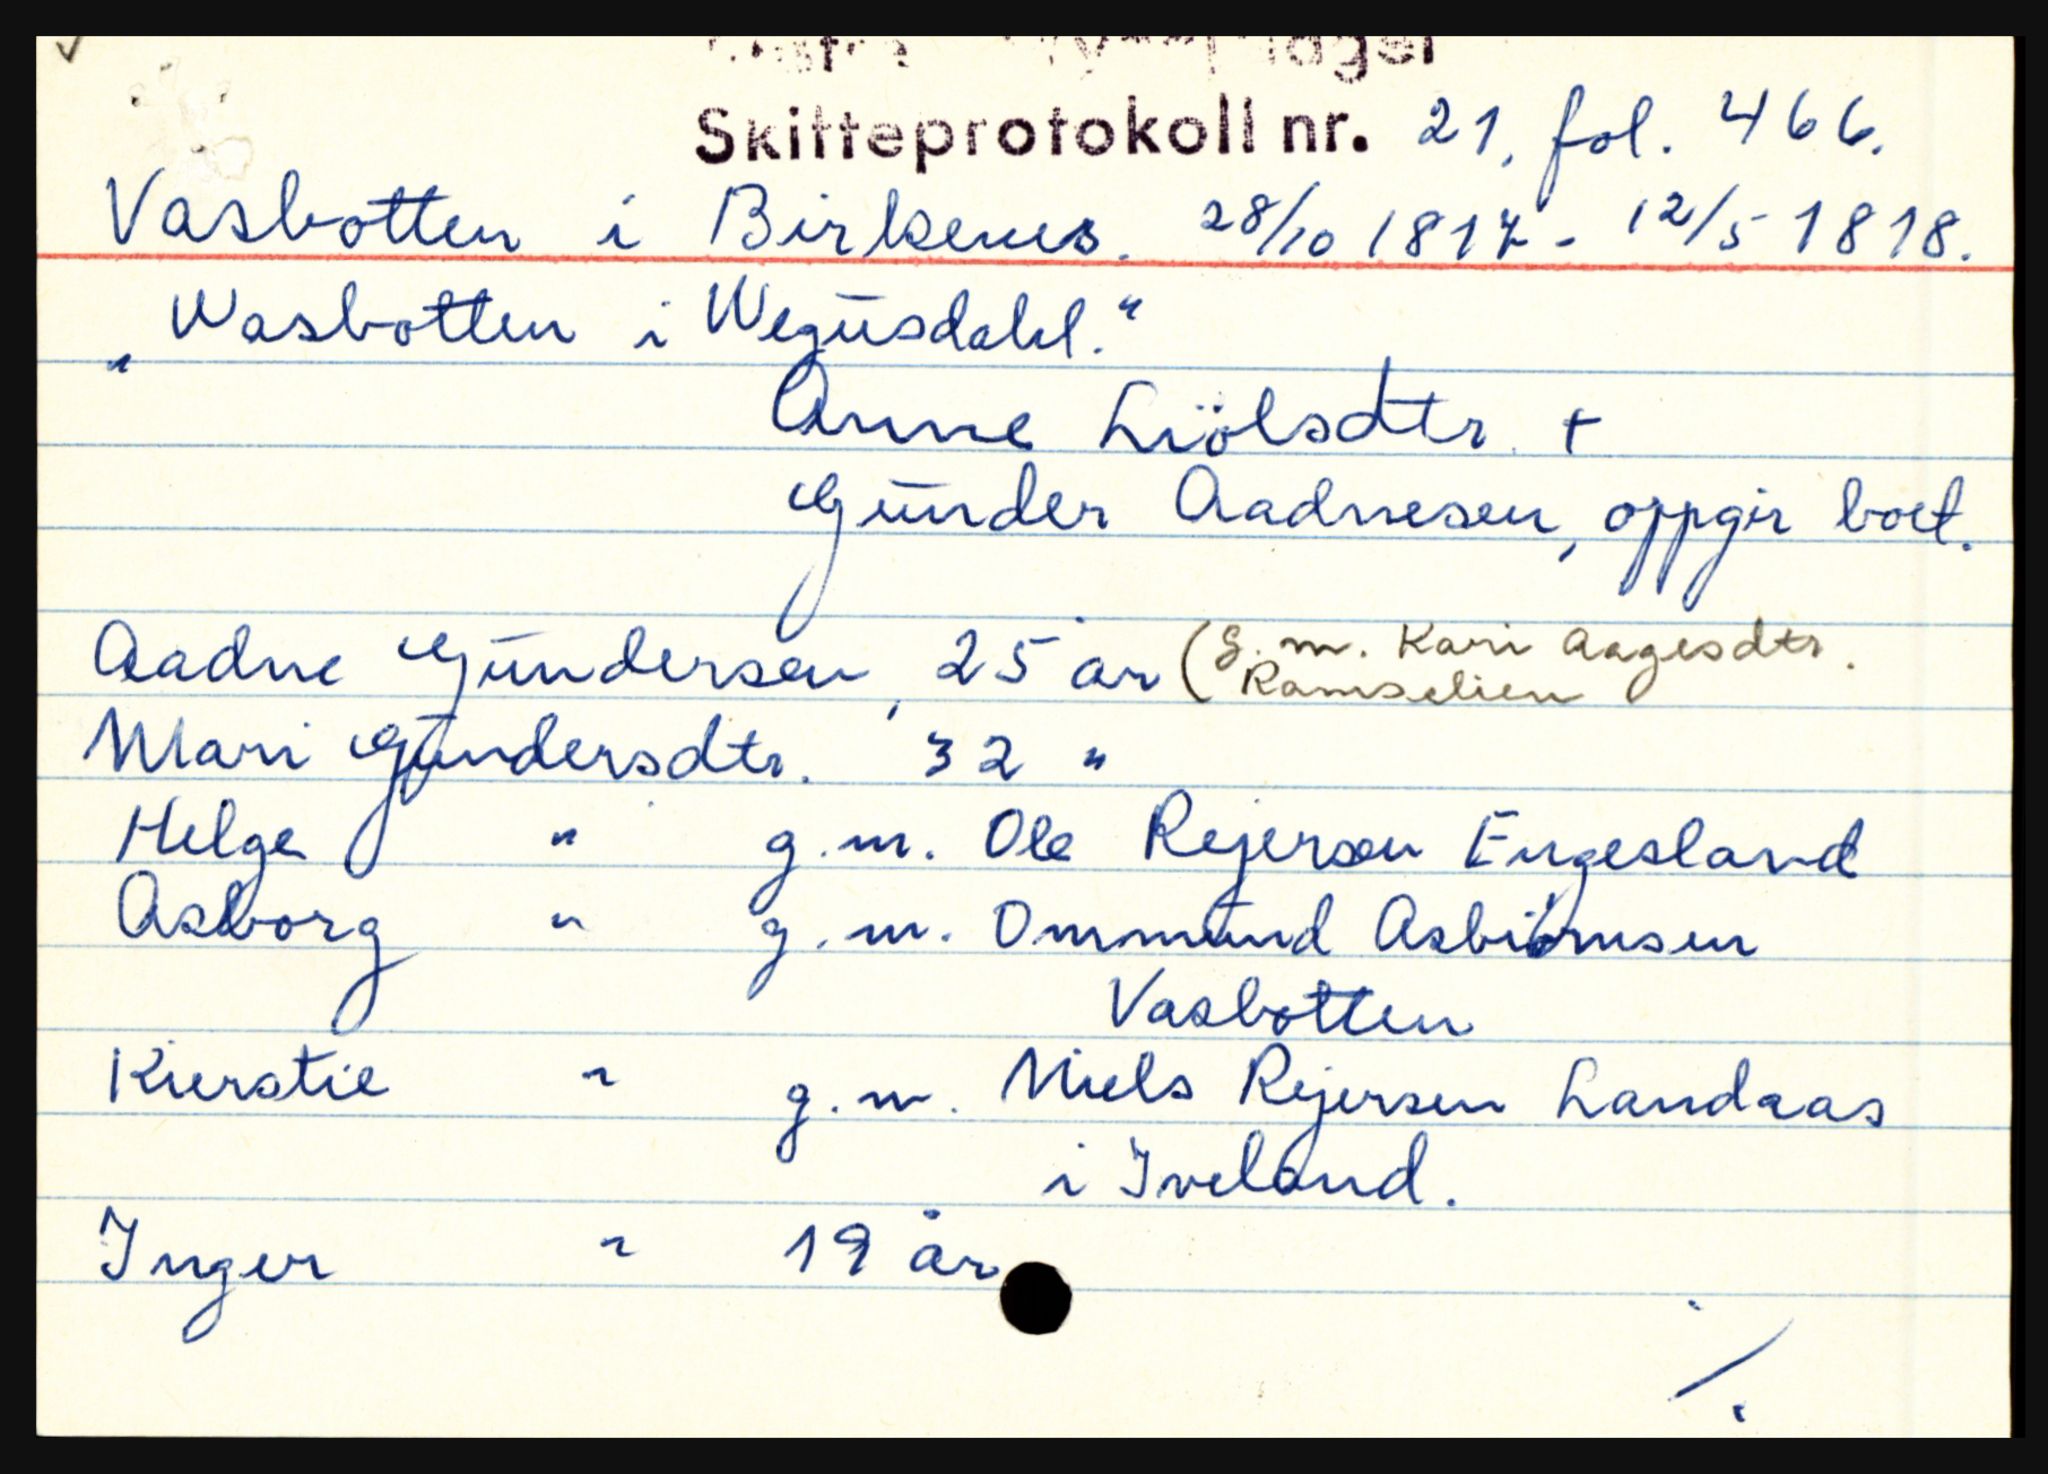 Skifteprotokoll nr. 21, fol. 466.
Vasbotten i Birkenes. 28/10 1817 - 12/5 1818.
„Wasbotten i Wegusdahl."
Anne Liölsdtr. +
Gunder Aadnesen, oppgir boet.
Aadne Gundersen, 25 år (g. m. Kari Aagesdtr.
Ramselien
Mari Gundersdtr. 32 "
Helge " g.m. Ole Rejersen Engesland
Asborg " g.m. Ommund Asbiörnsen
Vasbotten
Kierstie " g.m. Niels Rejersen Landaas
i Iveland.
Inger " 19 år
./.